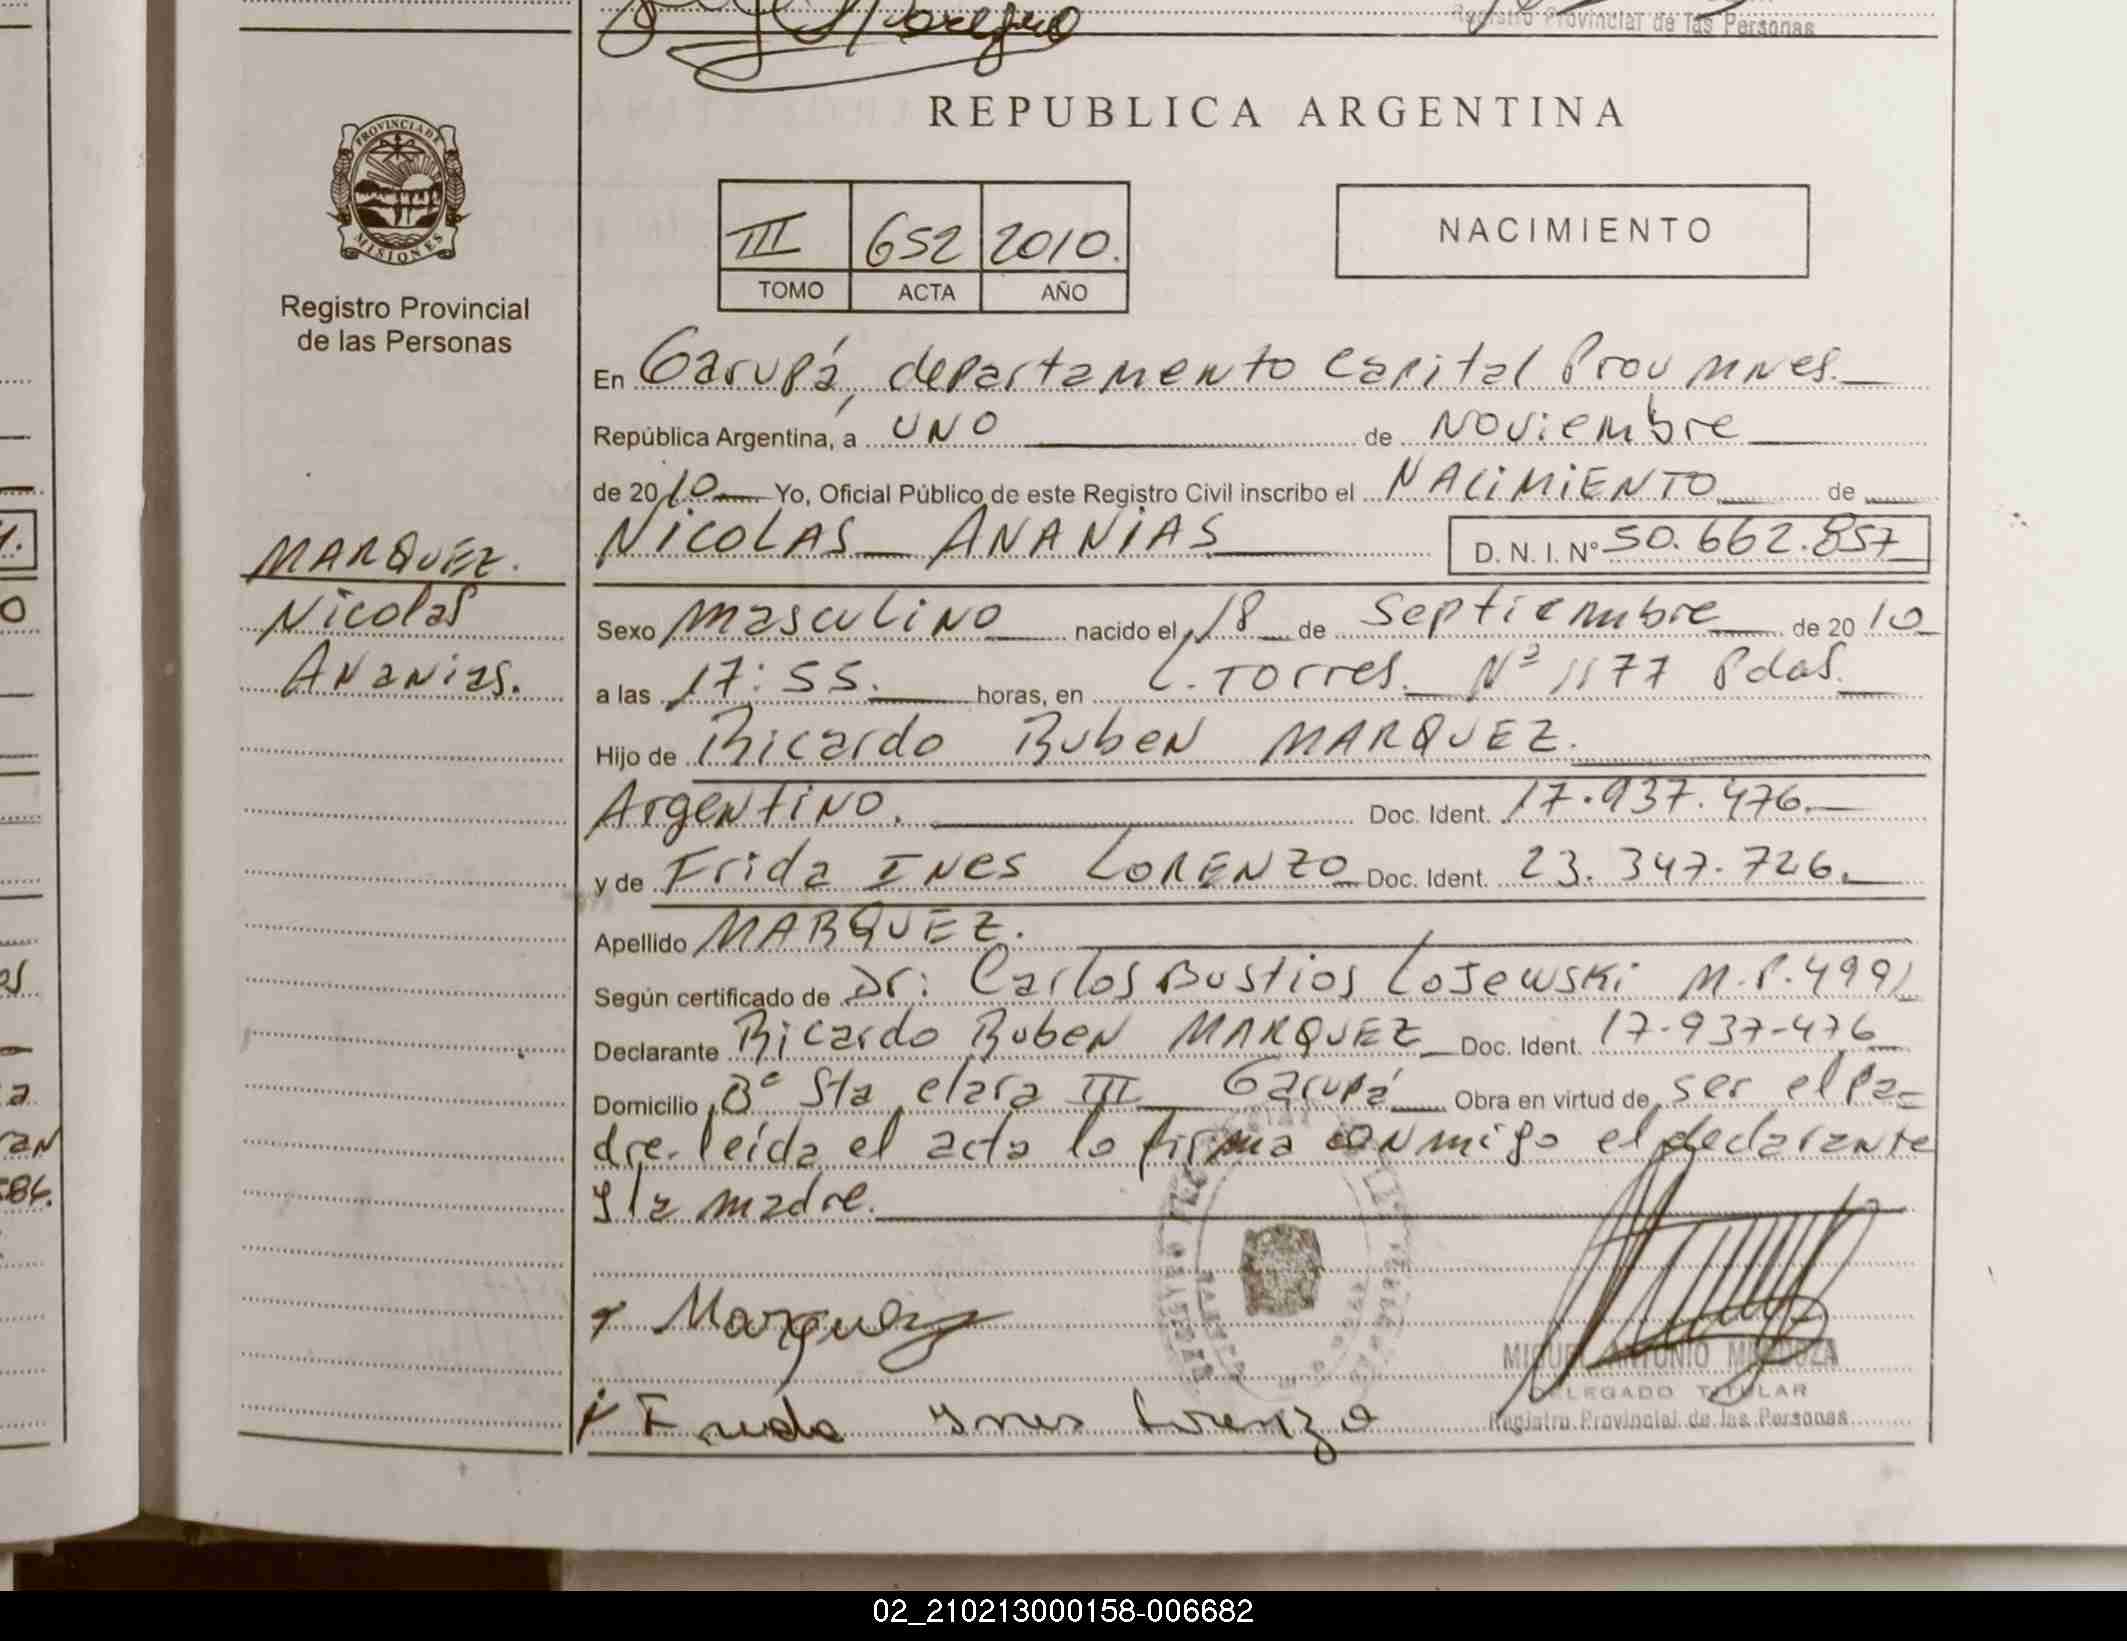 Registro Provincial de las Personas
REPUBLICA ARGENTINA
PROVINCIA DE
MISIONES
Registro Provincial
de las Personas
III 652 2010.
TOMO ACTA AÑO
NACIMIENTO
En Garupá, departamento Capital Prov Mnes.
República Argentina, a UNO de Noviembre
de 2010 Yo, Oficial Público de este Registro Civil inscribo el NACIMIENTO de
NICOLAS ANANIAS D. N. I. Nº 50.662.857
MARQUEZ.
Nicolas
Ananias.
Sexo masculino nacido el 18 de Septiembre de 2010
a las 17:55. horas, en L. Torres. Nº 1177 Pdas.
Hijo de Ricardo Ruben MARQUEZ.
Argentino. Doc. Ident. 17.937.476.
y de Frida Ines LORENZO Doc. Ident. 23.347.726.
Apellido MARQUEZ.
Según certificado de Dr: Carlos Bustios Lojewski M.P.4991
Declarante Ricardo Ruben MARQUEZ Doc. Ident. 17-937-476
Domicilio Bº Sta clara III Garupá Obra en virtud de ser el pa=
dre. leída el acta lo firma conmigo el declarante
y la madre.
Marquez
Frida Ines Lorenzo
MIGUEL ANTONIO MENDOZA
DELEGADO TITULAR
Registro Provincial de las Personas
02_210213000158-006682